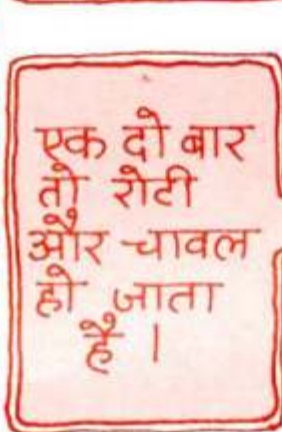 एक दो बार
तो रोटी
और चावल
हो जाता
है।